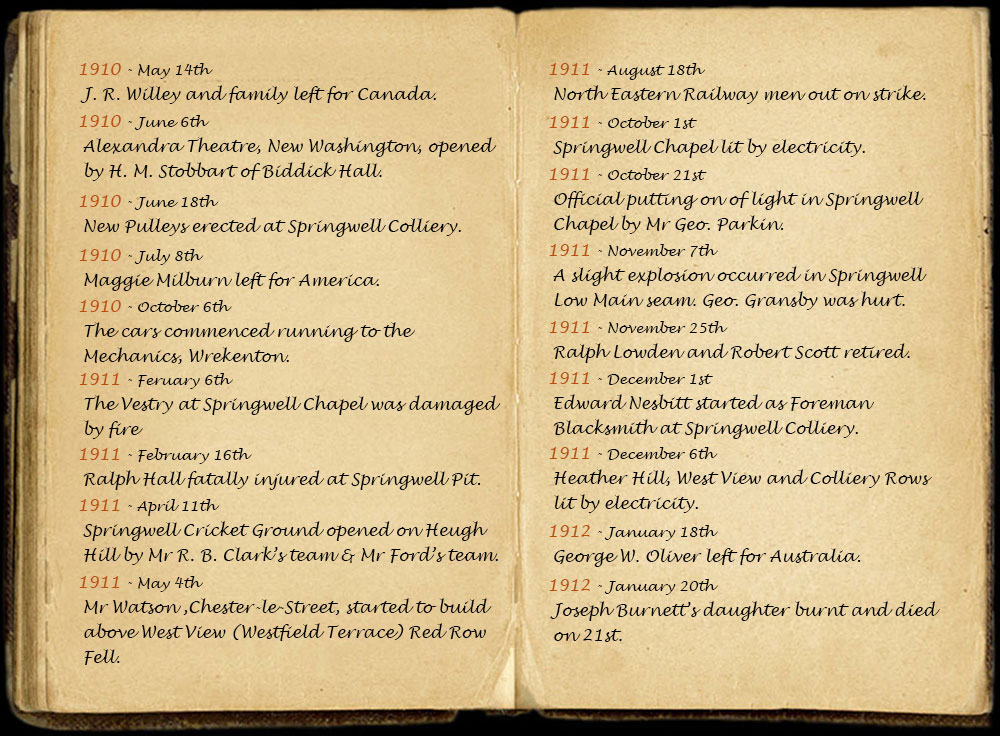 1910 - May 14th
J. R. Willey and family left for Canada.
1910 - June 6th
Alexandra Theatre, New Washington, opened
by H. M. Stobbart of Biddick Hall.
1910 - June 18th
New Pulleys erected at Springwell Colliery.
1910 - July 8th
Maggie Milburn left for America.
1910 - October 6th
The cars commenced running to the
Mechanics, Wrekenton.
1911 - Feruary 6th
The Vestry at Springwell Chapel was damaged
by fire
1911 - February 16th
Ralph Hall fatally injured at Springwell Pit.
1911 - April 11th
Springwell Cricket Ground opened on Heugh
Hill by Mr R. B. Clark's team & Mr Ford's team.
1911 - May 4th
Mr Watson ,Chester-le-Street, started to build
above West View (Westfield Terrace) Red Row
Fell.
1911 - August 18th
North Eastern Railway men out on strike.
1911 - October 1st
Springwell Chapel lit by electricity.
1911 - October 21st
Official putting on of light in Springwell
Chapel by Mr Geo. Parkin.
1911 - November 7th
A slight explosion occurred in Springwell
Low Main seam. Geo. Gransby was hurt.
1911 - November 25th
Ralph Lowden and Robert Scott retired.
1911 - December 1st
Edward Nesbitt started as Foreman
Blacksmith at Springwell Colliery.
1911 - December 6th
Heather Hill, West View and Colliery Rows
lit by electricity.
1912 - January 18th
George W. Oliver left for Australia.
1912 - January 20th
Joseph Burnett's daughter burnt and died
on 21st.